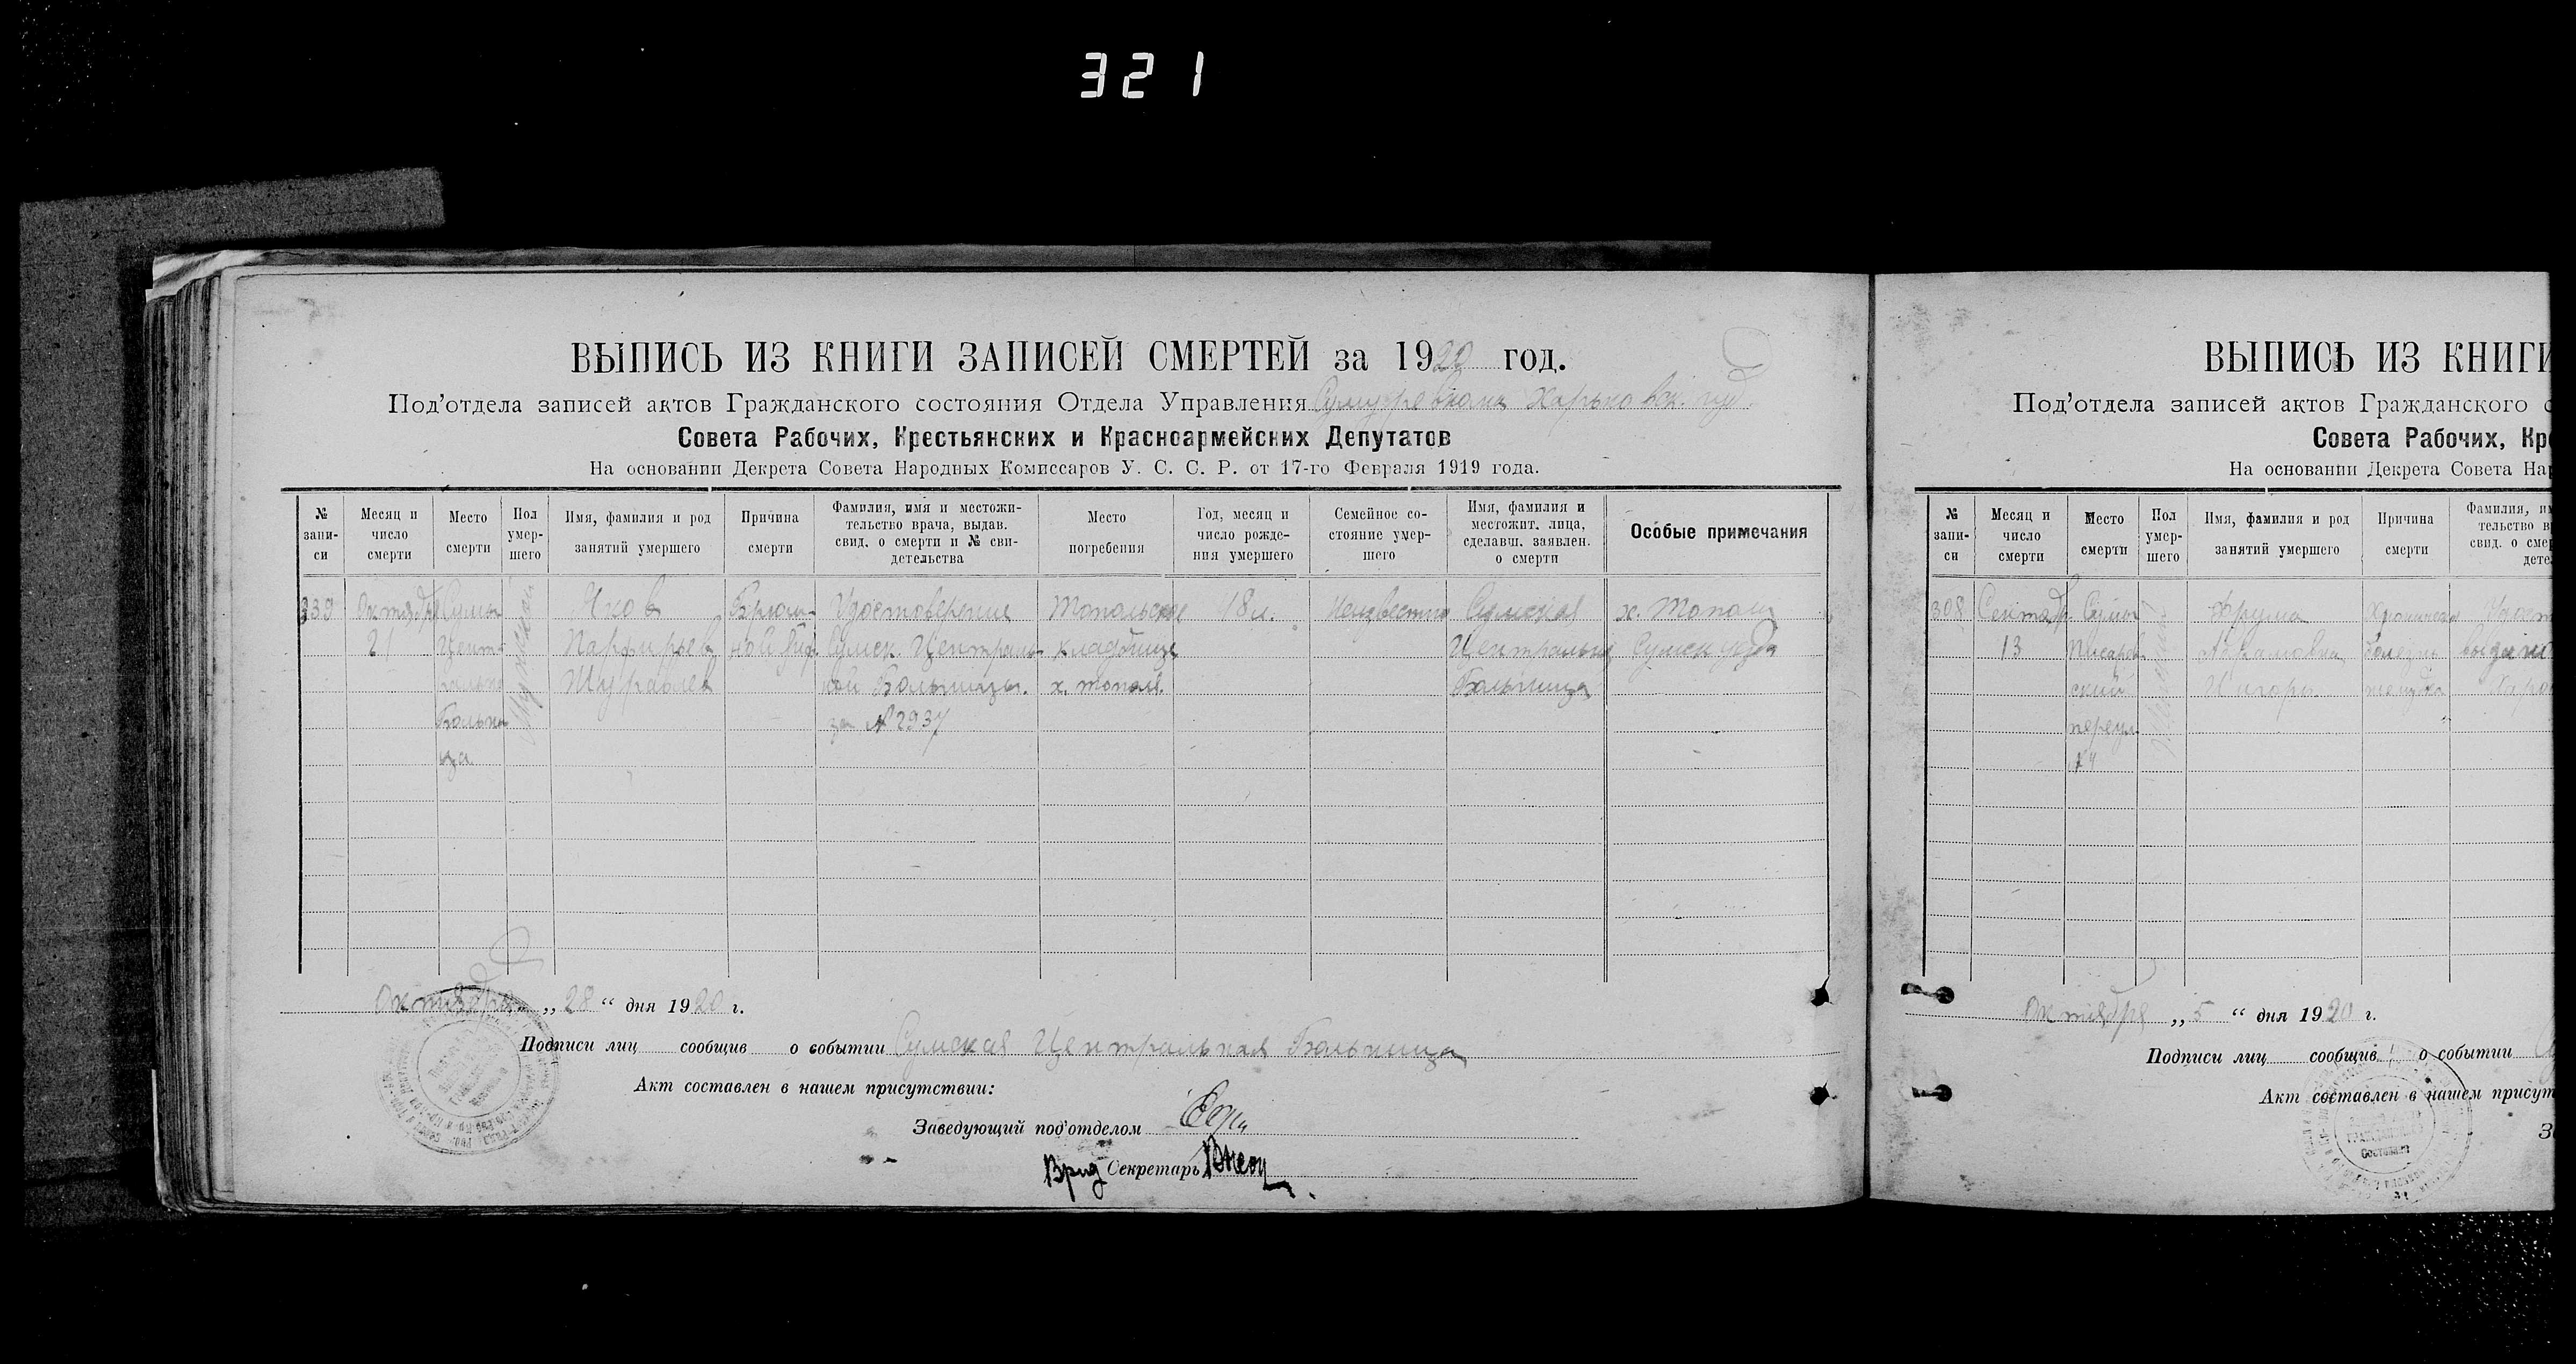 321
ВЫПИСЬ ИЗ КНИГИ ЗАПИСЕЙ СМЕРТЕЙ за 1920 год.
Под'отдела записей актов Гражданского состояния Отдела Управления Харьковск. губ.
Совета Рабочих, Крестьянских и Красноармейских Депутатов
На основании Декрета Совета Народных Комиссаров У. С. С. Р. от 17-го Февраля 1919 года.
№ запи- си
Месяц и число смерти
Место смерти
Пол умер- шего
Имя, фамилия и род занятий умершего
Причина смерти
Фамилия, имя и местожи- тельство врача, выдав. свид. о смерти и № сви- детельства
Место погребения
Год, месяц и число рожде- ния умершего
Семейное со- стояние умер- шего
Имя, фамилия и местожит. лица, сделавш. заявлен. о смерти
Особые примечания
339
Октября 21
Сумы Цент- ральн Больни ца
Мужской
Яков Парфирьев Журавлев
Брюш- ной Тиф.
Удостоверение Сумск. Централь- ной Больницы. за № 2937
Топольское кладбище х. тополи.
48 л.
Неизвестно
Сумская Центральн Больница
х. Тополи Сумск уезда
Октября „28“ дня 1920 г.
Подписи лиц сообщив о событии Сумская Центральная Больница
Акт составлен в нашем присутствии:
Заведующий под'отделом
Врид Секретарь
ВЫПИСЬ ИЗ КНИГИ
Под'отдела записей актов Гражданского с
Совета Рабочих, Кре
На основании Декрета Совета Нар
№ запи- си
Месяц и число смерти
Место смерти
Пол умер- шего
Имя, фамилия и род занятий умершего
Причина смерти
Фамилия, им тельство в свид. о смер дете
308
Сентябр 13
Сумы Писарев ский переул №4
Фрума Абрамовна
Хроническ болезнь желудка
Октября „5“ дня 1920 г.
Подписи лиц сообщив о событии
Акт составлен в нашем присут
За